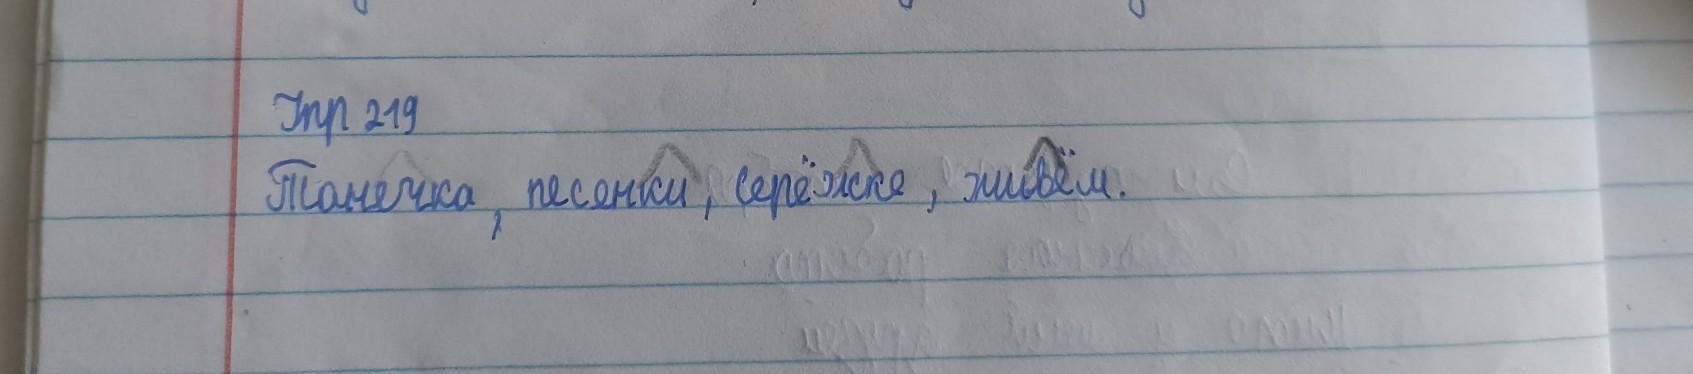 Упр 219
Танечка, песенки, серёжке, живём.